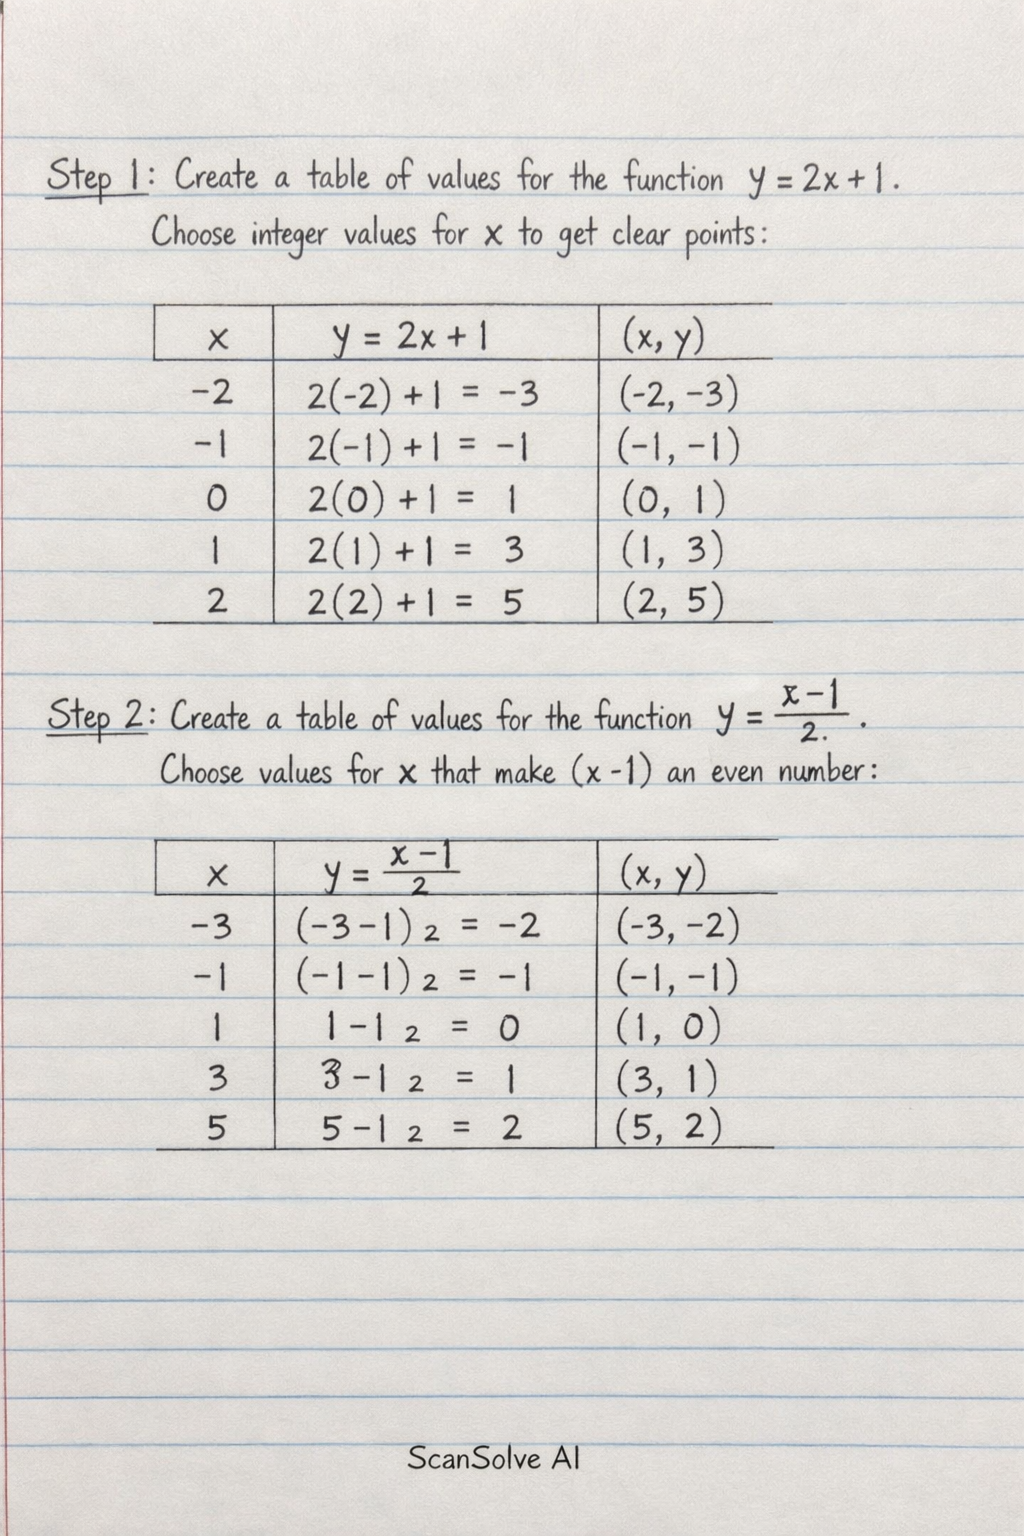 Step 1: Create a table of values for the function y = 2x + 1.
Choose integer values for x to get clear points:
x y = 2x + 1 (x, y)
-2 2(-2) + 1 = -3 (-2, -3)
-1 2(-1) + 1 = -1 (-1, -1)
0 2(0) + 1 = 1 (0, 1)
1 2(1) + 1 = 3 (1, 3)
2 2(2) + 1 = 5 (2, 5)
Step 2: Create a table of values for the function y = x - 1 / 2. .
Choose values for x that make (x - 1) an even number:
x y = x - 1 / 2 (x, y)
-3 (-3 - 1) 2 = -2 (-3, -2)
-1 (-1 - 1) 2 = -1 (-1, -1)
1 1 - 1 2 = 0 (1, 0)
3 3 - 1 2 = 1 (3, 1)
5 5 - 1 2 = 2 (5, 2)
ScanSolve AI